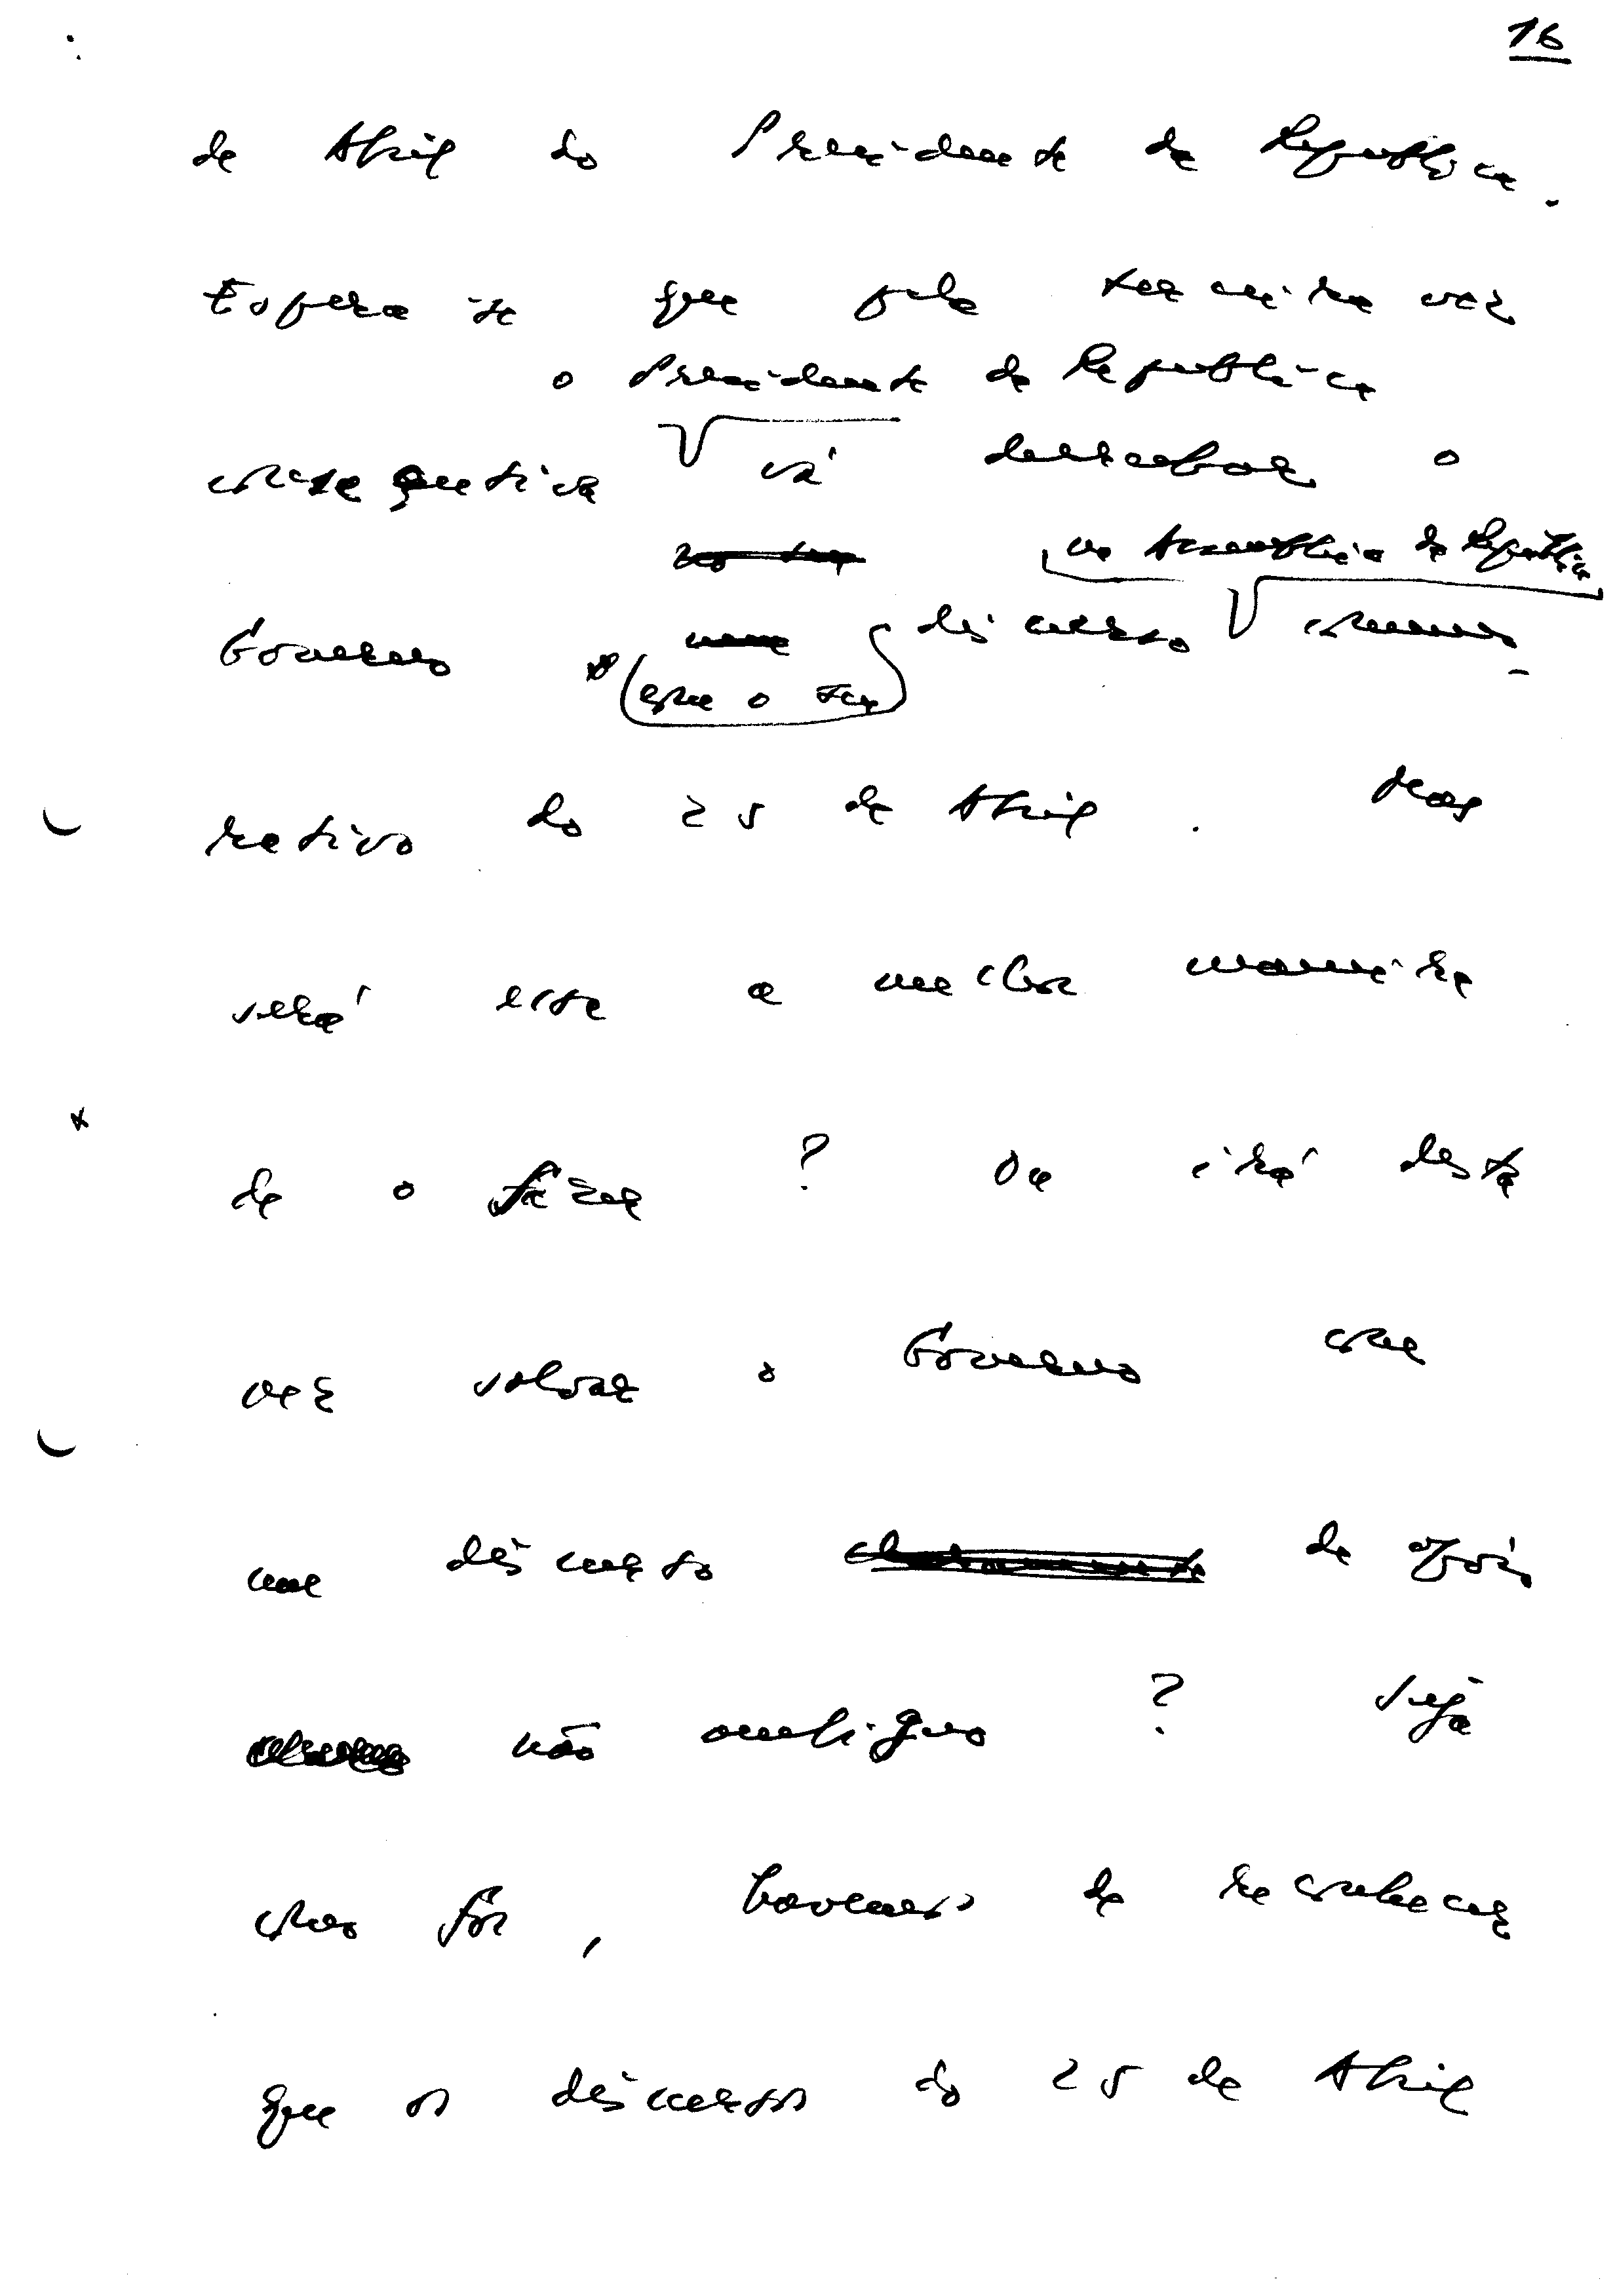 16
de Abril do Presidente da República.
Espera-se que pela terceira vez
o Presidente da República
consequtiva vá derrubar o
na Assembleia da República
Governo discurso comemo-
que o faz
rativo do 25 de Abril. Mas
será essa a melhor maneira
de o fazer? Ou irá desta
vez salvar o Governo com
um discurso de apoio
não ambíguo? Seja
como for, havemos de reconhecer
que os discursos do 25 de Abril